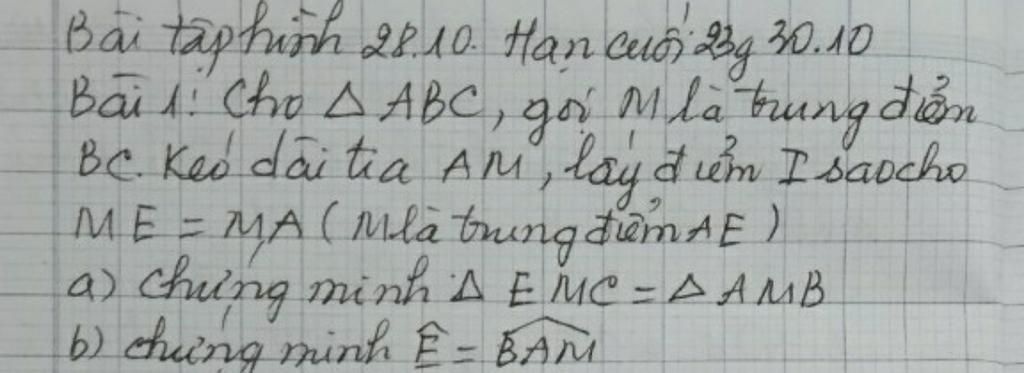 Bài tập hình 28.10. Hạn cuối 23g 30.10
Bài 1: Cho △ ABC, gọi M là trung điểm
BC. Kéo dài tia AM, lấy điểm I sao cho
ME = MA ( M là trung điểm AE )
a) Chứng minh △ EMC = △ AMB
b) chứng minh Ê = \widehat{BAM}